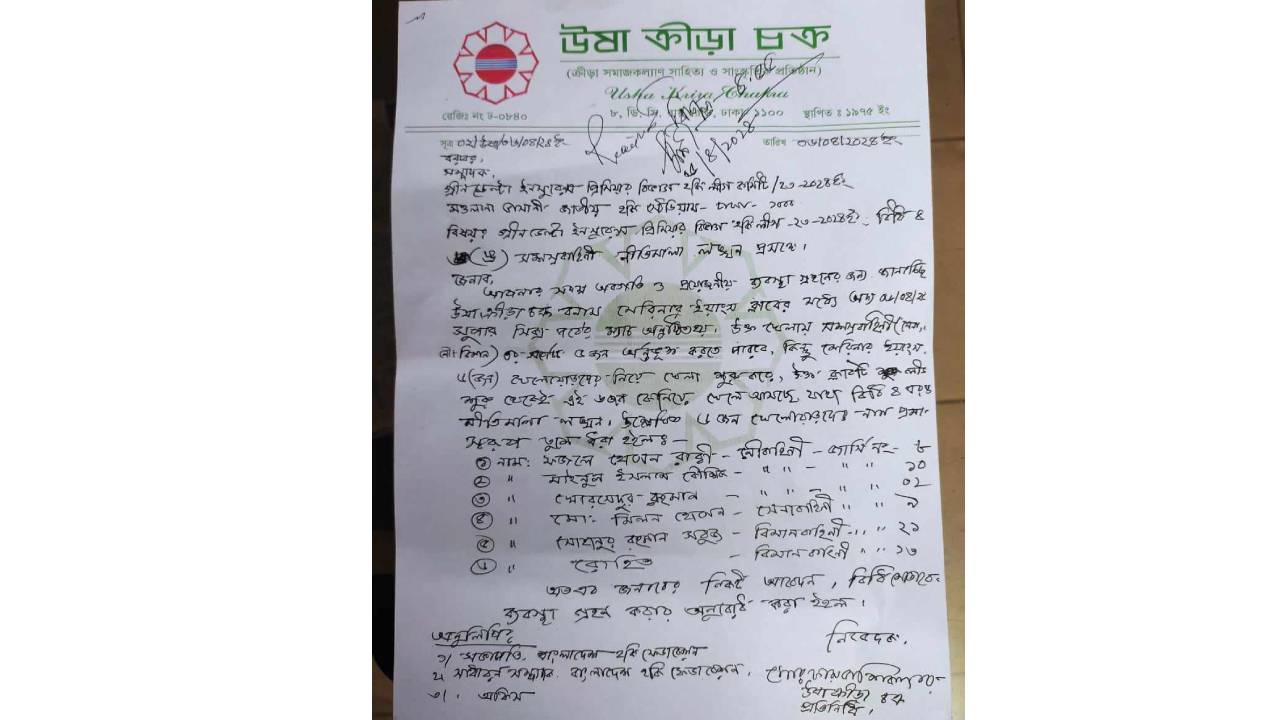 উষা ক্রীড়া চক্র
(ক্রীড়া সমাজকল্যাণ সাহিত্য ও সাংস্কৃতিক প্রতিষ্ঠান)
Usha Krira Chakra
রেজিঃ নং ঢ-০৮৪০
৮, ডি. সি. ঢাকা-১১০০
স্থাপিত ঃ ১৯৭৫ ইং
সূত্র
তারিখ ০৬/০৪/২০২৪ইং
বরাবর,
সম্পাদক,
গ্রীন ডেল্টা ইনসুরেন্স প্রিমিয়ার বিভাগ হকি লীগ কমিটি/২৩-২০২৪ইং
মওলানা ভাসানী জাতীয় হকি স্টেডিয়াম- ঢাকা- ১০০০
বিষয়ঃ গ্রীন ডেল্টা ইনসুরেন্স প্রিমিয়ার বিভাগ হকি লীগ -২৩-২০২৪ইং- বিধি ৪
সশস্ত্রবাহিনী নীতিমালা লঙ্ঘন প্রসঙ্গে।
জনাব,
আপনার সদয় অবগতি ও প্রয়োজনীয় ব্যবস্থা গ্রহনের জন্য জানাচ্ছি
উষা ক্রীড়া চক্র বনাম মেরিনার ইয়াংস ক্লাবের মধ্যে অদ্য
সুপার সিক্স পর্বের ম্যাচ অনুষ্ঠিত হয়, উক্ত খেলায় সশস্ত্রবাহিনী (সেনা,
নৌ বিমান) এর সর্বোচ্চ ৫ জন অর্ন্তভুক্ত করতে পারবে, কিন্তু মেরিনার ইয়াংস
(জন) খেলোয়াড়দের নিয়ে খেলা শুরু করে, উক্ত ক্লাবটি লীগ
শুরু থেকেই এই খেলে আসছে যাহা বিধি ৪ এর
নীতিমালা লঙ্ঘন। উল্লেখিত ৬ জন খেলোয়ারদের নাম প্রমাণ
স্বরূপ তুলে ধরা হইলঃ—
১ নাম: ফজলে হোসেন রাব্বী - নৌবাহিনী - জার্সি নং - ৮
২ " মাইনুল ইসলাম কৌশিক - " " - " " ১০
৩ " খোরশেদুর রহমান - " " - " " ০২
৪ " মো: মিলন হোসেন - সেনাবাহিনী " " ৯
৫ " সোহানুর রহমান সবুজ - বিমানবাহিনী - " " ২১
৬ " রোহিত - বিমান বাহিনী " " ১৩
অতএব জনাবের নিকট আবেদন, বিধি মোতাবেক
ব্যবস্থা গ্রহন করার অনুরোধ করা হইল।
অনুলিপিঃ
নিবেদক,
১/ সভাপতি, বাংলাদেশ হকি ফেডারেশন
২/ সাধারন সম্পাদক, বাংলাদেশ হকি ফেডারেশন,
৩/ অফিস
উষা ক্রীড়া চক্র
প্রতিনিধি।